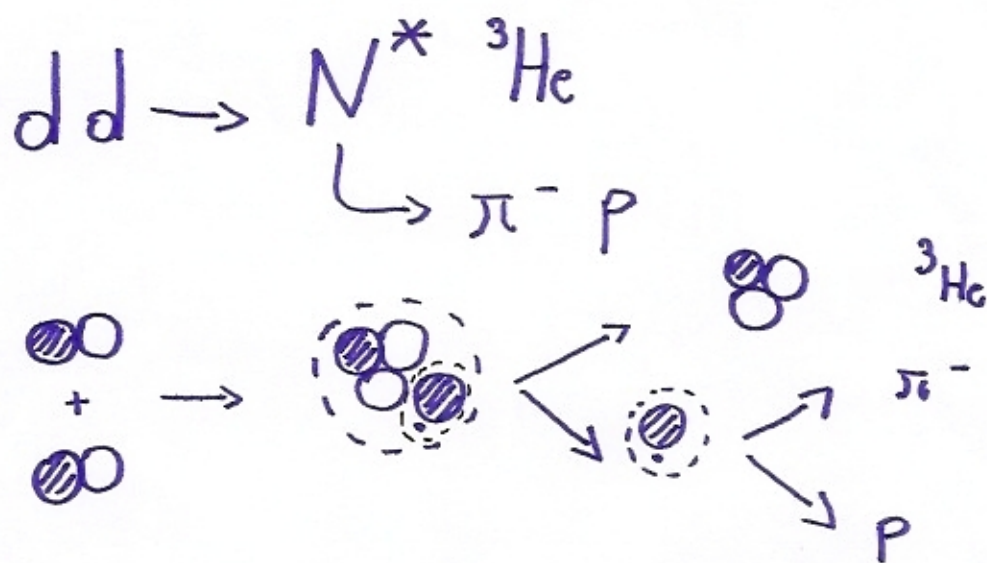 dd → N* ³He
↳ π⁻ p
³He
+ → π⁻
p